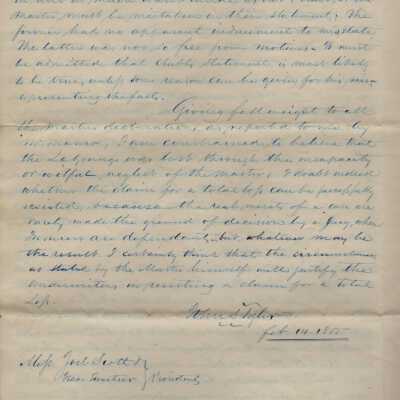 Master, must be mistaken in their statement. The
former had no apparent inducement to misstate.
The latter was not so free from motive. It must
be admitted that Chubb's statement, is most likely
to be true, unless some reason can be given for his mis-
representing the facts.
Giving full weight to all
the Master's declarations, as reported to me by
I am constrained to believe that
the was lost through the incapacity
or wilful neglect of the Master; I doubt indeed
whether the claim for a total loss can be successfully
resisted, because the real merits of a case are
rarely made the ground of decision by a Jury, when
Insurers are dependants, but whatever may be
the result, I certainly think that the circumstances
as stated by the Master himself will justify the
underwriters in resisting a claim for a total
Loss.
John S. Tyler
Feb 14 - 185
Mess Joel Scott &